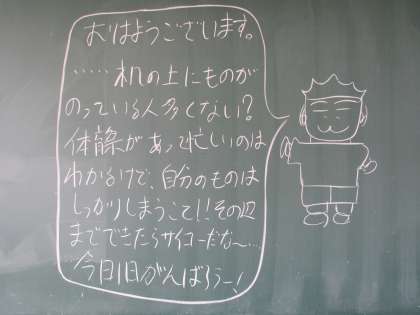 おはようございます。
‥‥‥机の上にものが
のっている人多くない？
体育祭があって忙しいのは
わかるけど、自分のものは
しっかりしまうこと！！その辺
までできたらサイコーだな～‥‥
今日1日がんばろうー！